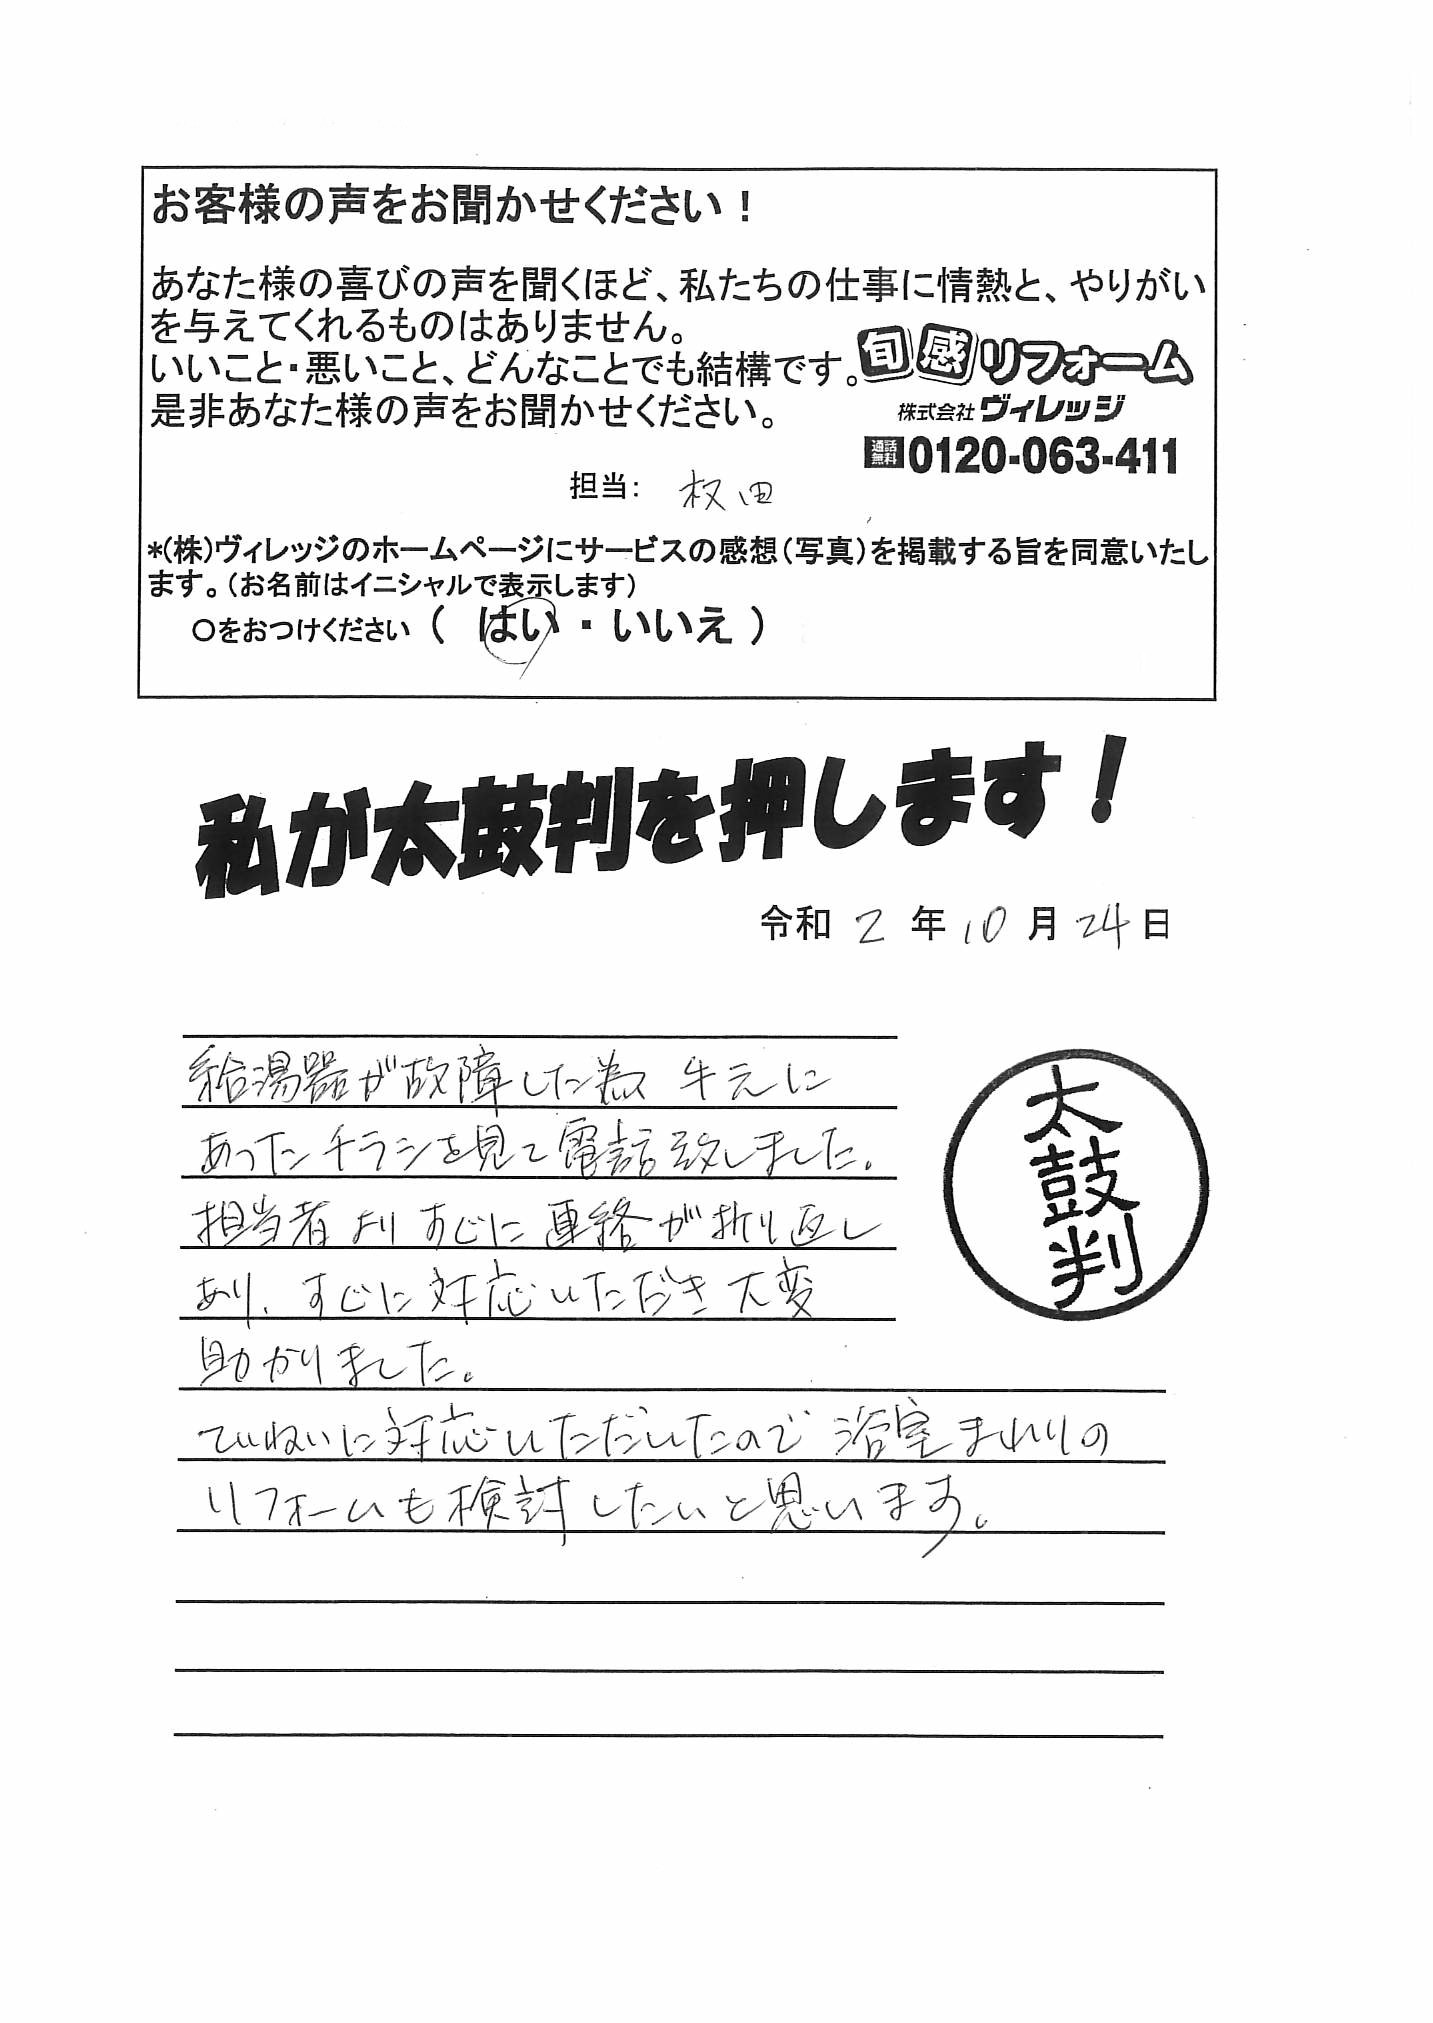 お客様の声をお聞かせください！
あなた様の喜びの声を聞くほど、私たちの仕事に情熱と、やりがい
を与えてくれるものはありません。
いいこと・悪いこと、どんなことでも結構です。
是非あなた様の声をお聞かせください。
旬感リフォーム
株式会社ヴィレッジ
通話無料0120-063-411
担当: 权田
*(株)ヴィレッジのホームページにサービスの感想(写真)を掲載する旨を同意いたし
ます。(お名前はイニシャルで表示します)
○をおつけください ( はい ・ いいえ )
私が太鼓判を押します！
令和 2 年 10 月 24 日
給湯器が故障した為 手元に
あったチラシを見て電話致しました。
担当者よりすぐに連絡が折り返し
あり、すぐに対応いただき大変
助かりました。
ていねいに対応いただいたので浴室まわりの
リフォームも検討したいと思います。
太鼓判